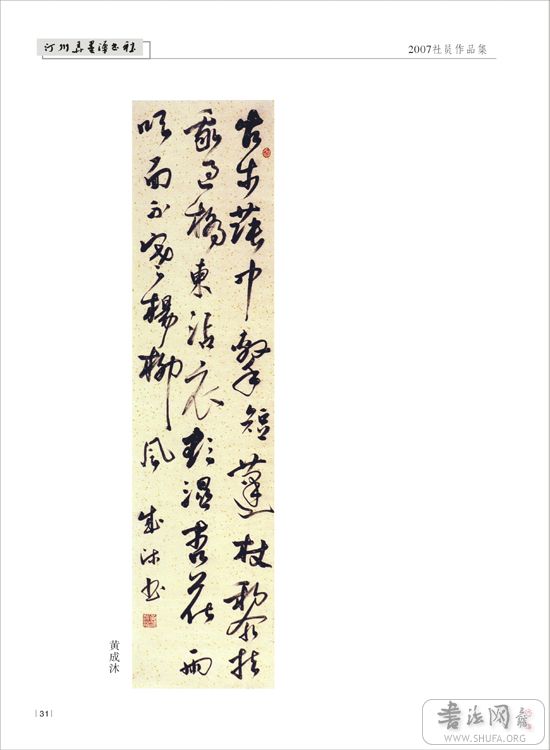 2007社员作品集
古木荫中系短篷杖藜扶
我过桥东沾衣欲湿杏花雨
吹面不寒杨柳风 成沐书
黄成沐
31
书法网
WWW.SHUFA.ORG